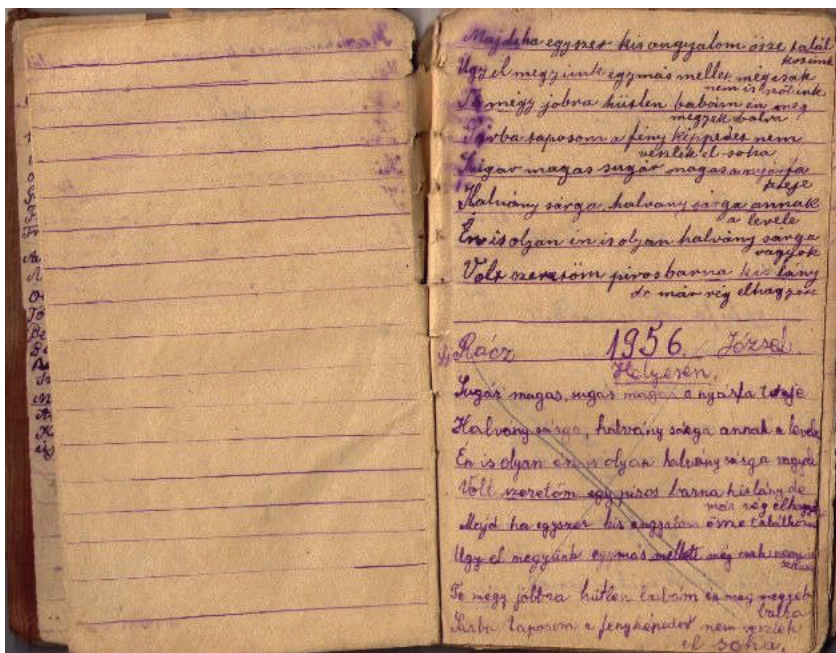 Majd ha egyszer kis angyalom ösze talál
kozunk
Ugy el megyünk egymás mellet mégcsak
nem is szólunk
Te mégy jobra hütlen babám én meg
megyek balra
Sárba taposom a fény képpedet nem
veszlik el soha
Sugár magas sugár magas a nyárfa
teteje
Halvány sárga, halvány sárga annak
a levele
Én is olyan én is olyan halvány sárga
vagyok
Volt szeretöm piros barna kis lány
de már rég elhagyott
ifj Rácz 1956. József
Helyesen.
Sugár magas, sugar magas a nyárfa teteje
Halvany sárga, halvány sárga annak a levele
Én is olyan én is olyan halvány sárga vagyok
Volt szeretőm egy piros barna kislány de
már rég elhagyott
Majd ha egyszer kis angyalom ösme találkozu
Ugy el megyünk egymas mellett még csak nem is
Te mégy jobbra hütlen babám én meg megyek
balra
Sárba taposom a fenyképedet nem veszlek
el soha.